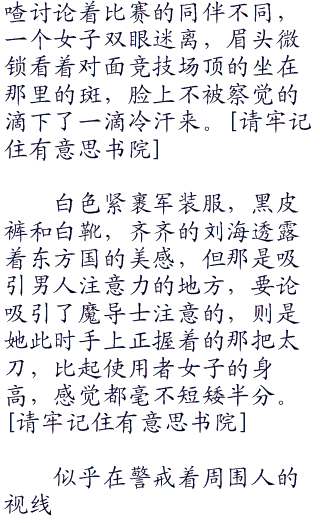 喳讨论着比赛的同伴不同，
一个女子双眼迷离，眉头微
锁看着对面竞技场顶的坐在
那里的斑，脸上不被察觉的
滴下了一滴冷汗来。[请牢记
住有意思书院]
白色紧裹军装服，黑皮
裤和白靴，齐齐的刘海透露
着东方国的美感，但那是吸
引男人注意力的地方，要论
吸引了魔导士注意的，则是
她此时手上正握着的那把太
刀，比起使用者女子的身
高，感觉都毫不短矮半分。
[请牢记住有意思书院]
似乎在警戒着周围人的
视线